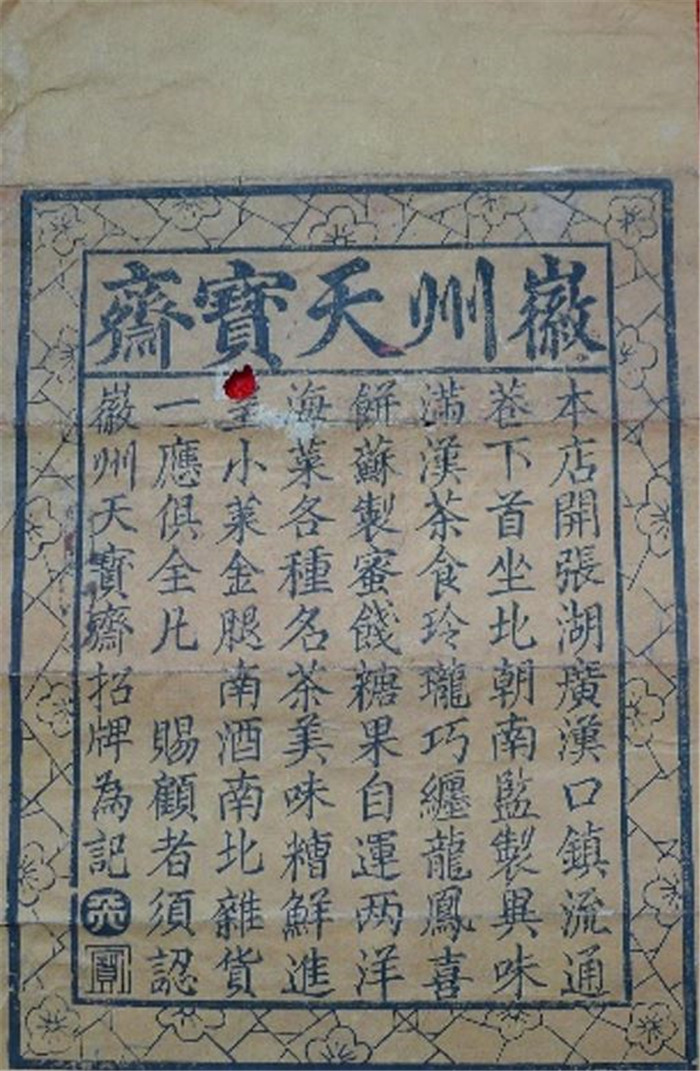 徽州天寶齋
本店開張湖廣漢口鎮流通
巷下首坐北朝南監製異味
滿漢茶食玲瓏巧纏龍鳳喜
餅蘇製蜜餞糖果自運两洋
海菜各種名茶美味糟鮮進
小菜金腿南酒南北雜貨
一應俱全凡 賜顧者須認
徽州天寶齋招牌為記 天 寶